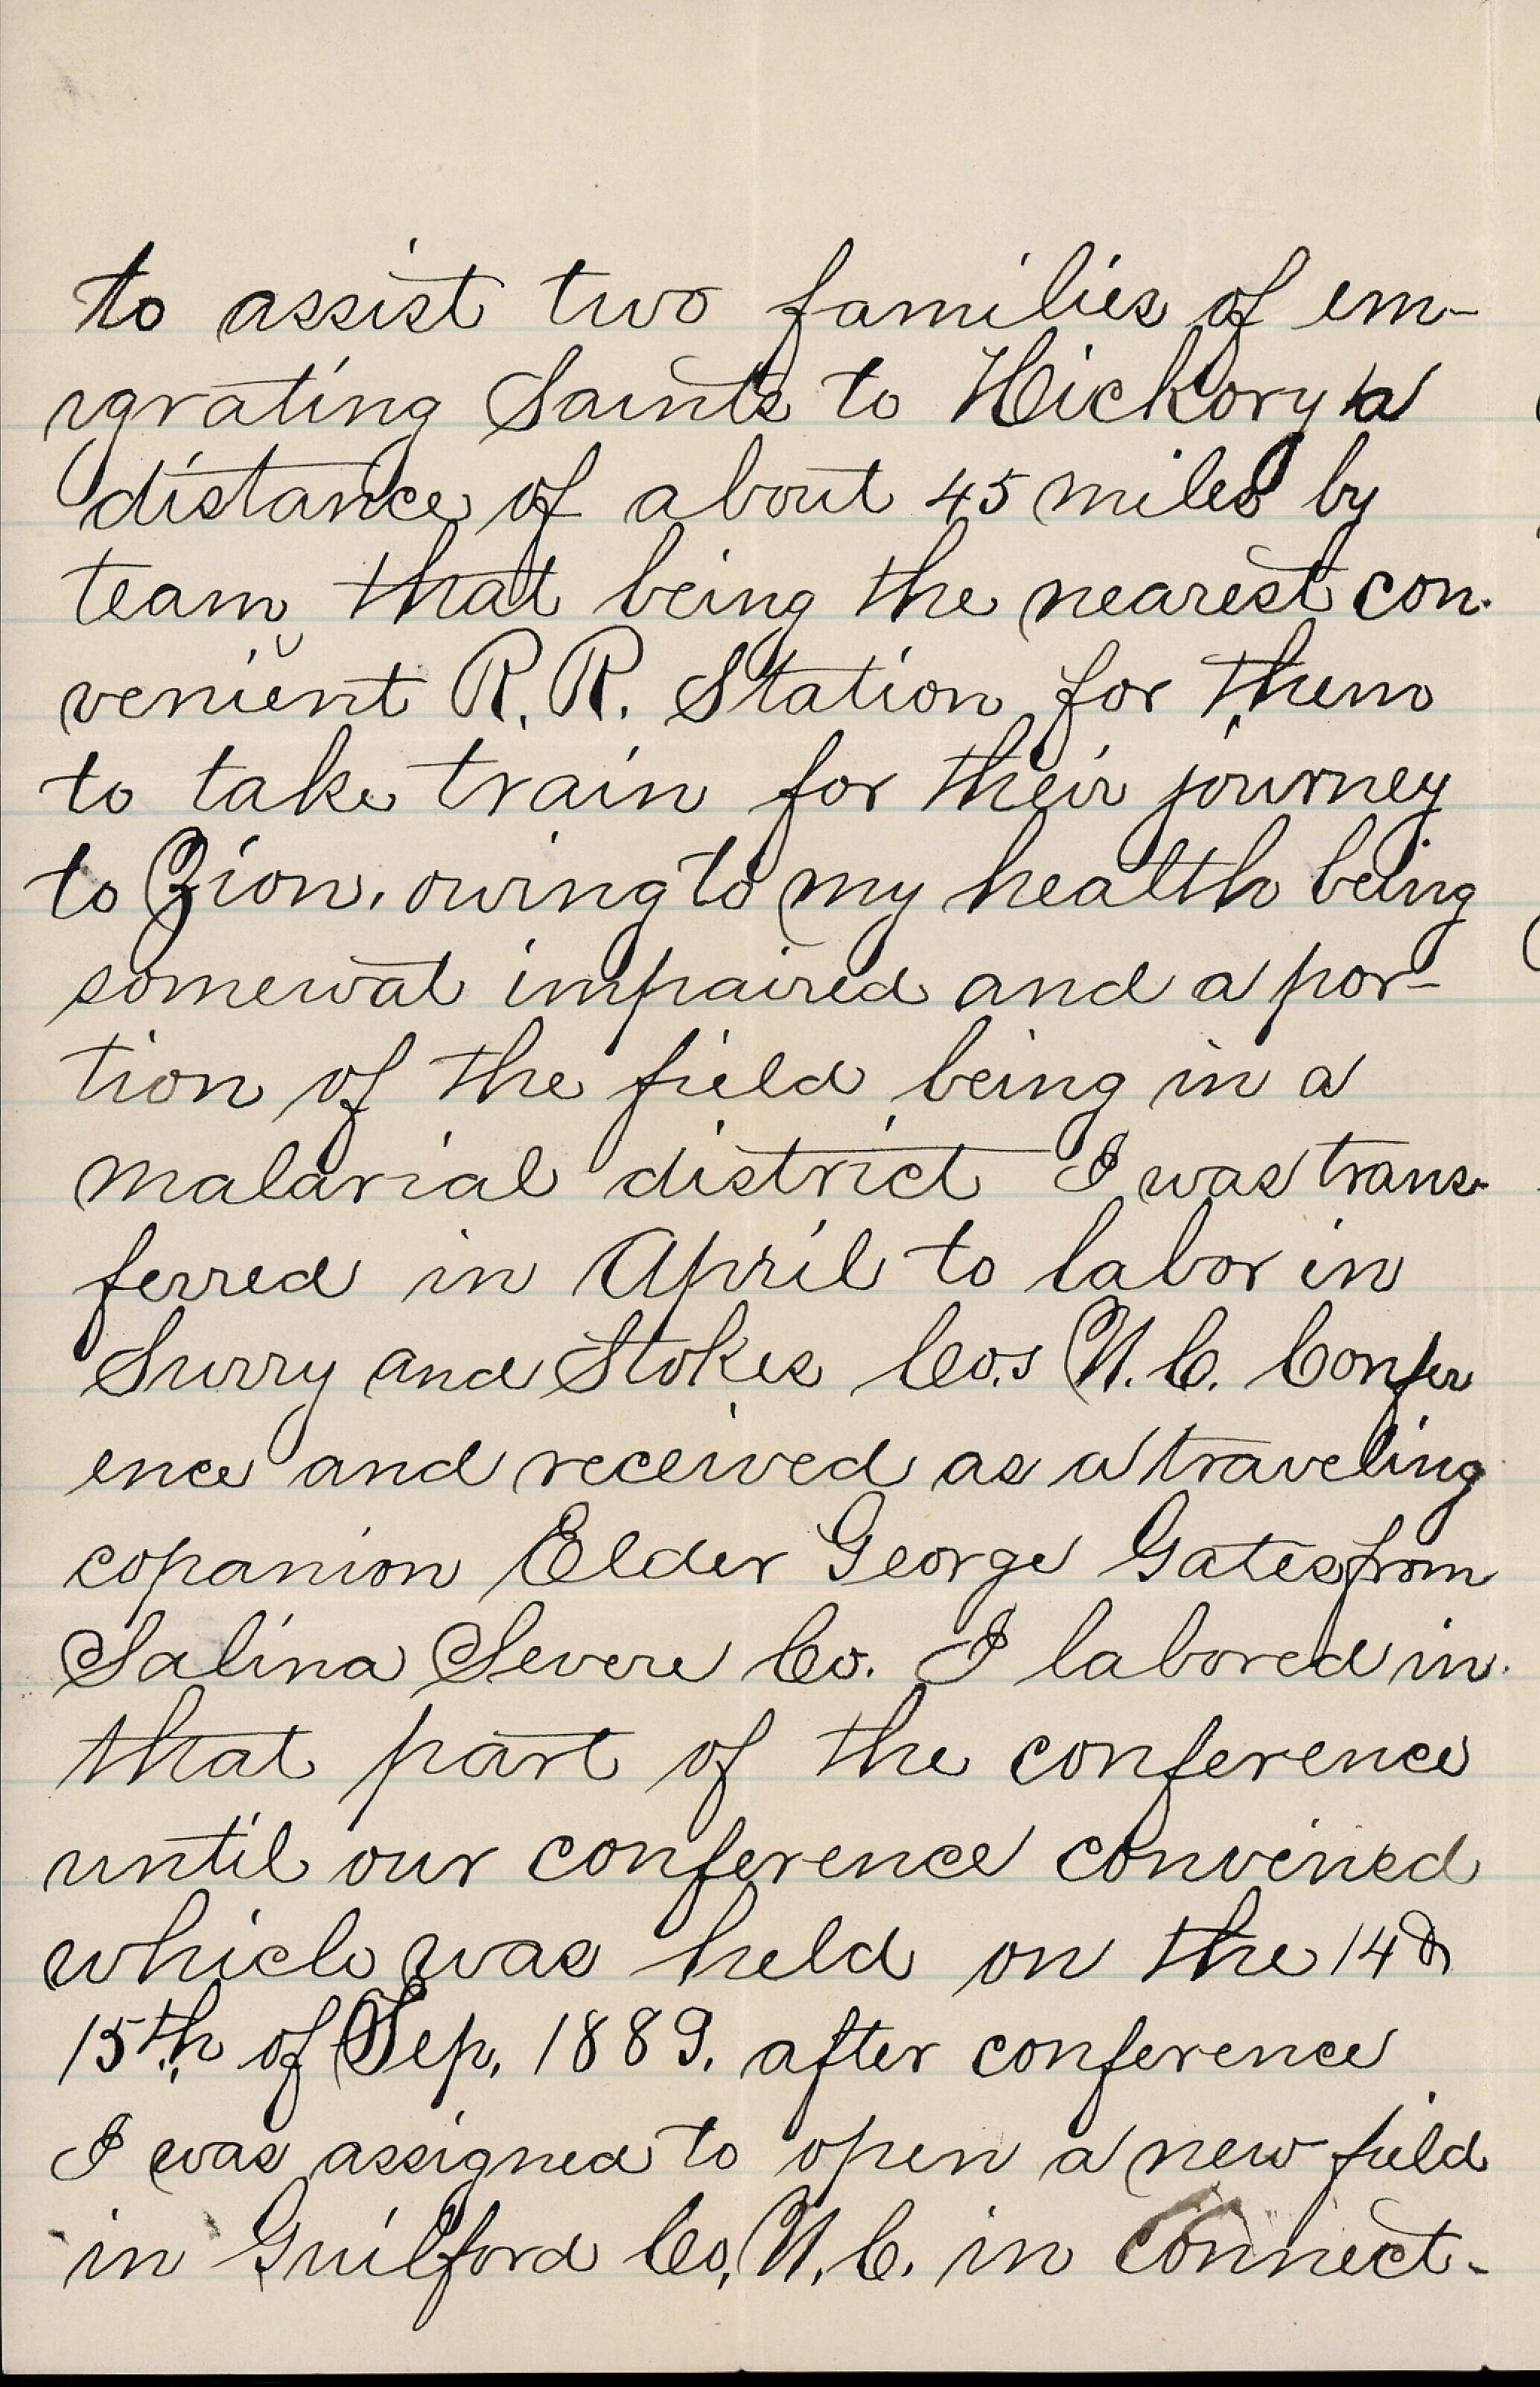 to assist two families of em-
igrating Saints to Hickory a
distance of about 45 miles by
team that being the nearest con-
venient R.R. Station for them
to take train for their journey
to Zion. owing to my health being
somewat impaired and a por-
tion of the field being in a
malarial district I was trans-
ferred in April to labor in
Surry and Stokes Co.s N.C. Confer
ence and received as a traveling
copanion Elder George Gates from
Salina Severe Co. I labored in
that part of the conference
until our conference convened
which was held on the 14 &
15th. of Sep. 1889. after conference
I was assigned to open a new field
in Guilford Co, N.C. in connect-